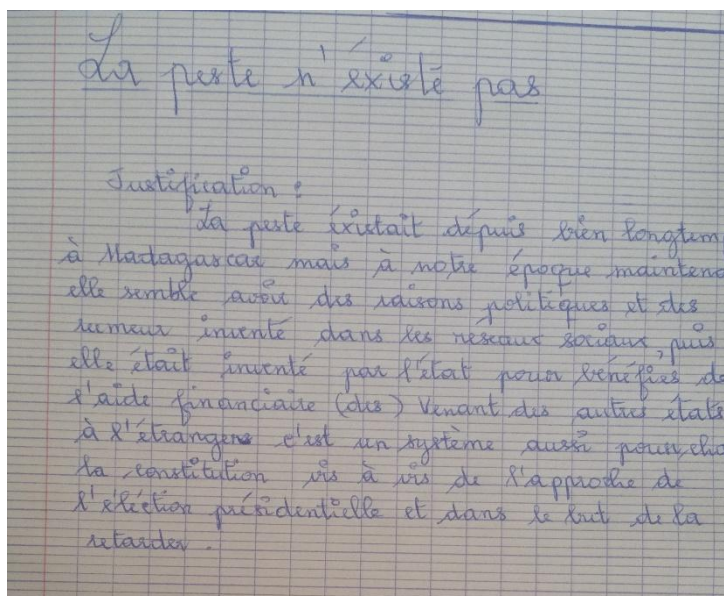 La peste n'éxisté pas
Justification :
La peste éxistait dépuis bien longtem
à Madagascar mais à notre époque maintena
elle semble avoir des raisons politiques et des
rumeur inventé dans les réseaux sociaux, puis
elle était inventé par l'état pour bénéfies de
l'aide financiaire (des) venant des autres états
à l'étrangers c'est un système aussi pour
la constitution vis à vis de l'approche de
l'éléction présidentielle et dans le but de la
retarder.